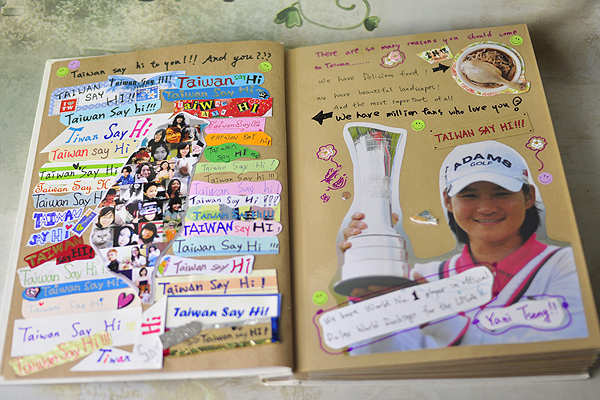 Taiwan say hi to you!!! And you???
TAIWAN SAY HI!!!
Taiwan Say !!!
Taiwan say Hi
Taiwan Say Hi
TAIWAN SAY HI
Taiwan Say hi!!!
Tiwan Say Hi
Taiwan say Hi!
Taiwan Say Hi
Taiwan Say Hi
Taiwan Say Hi
TAIWAN
SAY HI!!
Taiwan
Say Hi!
Taiwan Say Hi
Taiwan Say Hi
Taiwan Say Hi
Taiwan Say Hi!
Taiwan Say Hi!!!
Tiwan
Taiwan Say Hi!!!
TAIWAN SAY HI
Taiwan Say Hi!
Taiwan Say Hi!
Taiwan Say Hi !!!
TAIWAN SAY HI
Taiwan Say Hi !
Taiwan Say Hi
Taiwan Say Hi !
Taiwan Say Hi!
Taiwan Say Hi!
There are so many reasons you should come
to Taiwan......
We have Delicious food !
we have beautiful landscapes!
And the most important of all
We have million fans who love you!
TAIWAN SAY HI!!!
ADAMS
GOLF
We have World No.1 player in official
Rolex World Rankings for the LPGA
Yani Tseng!!